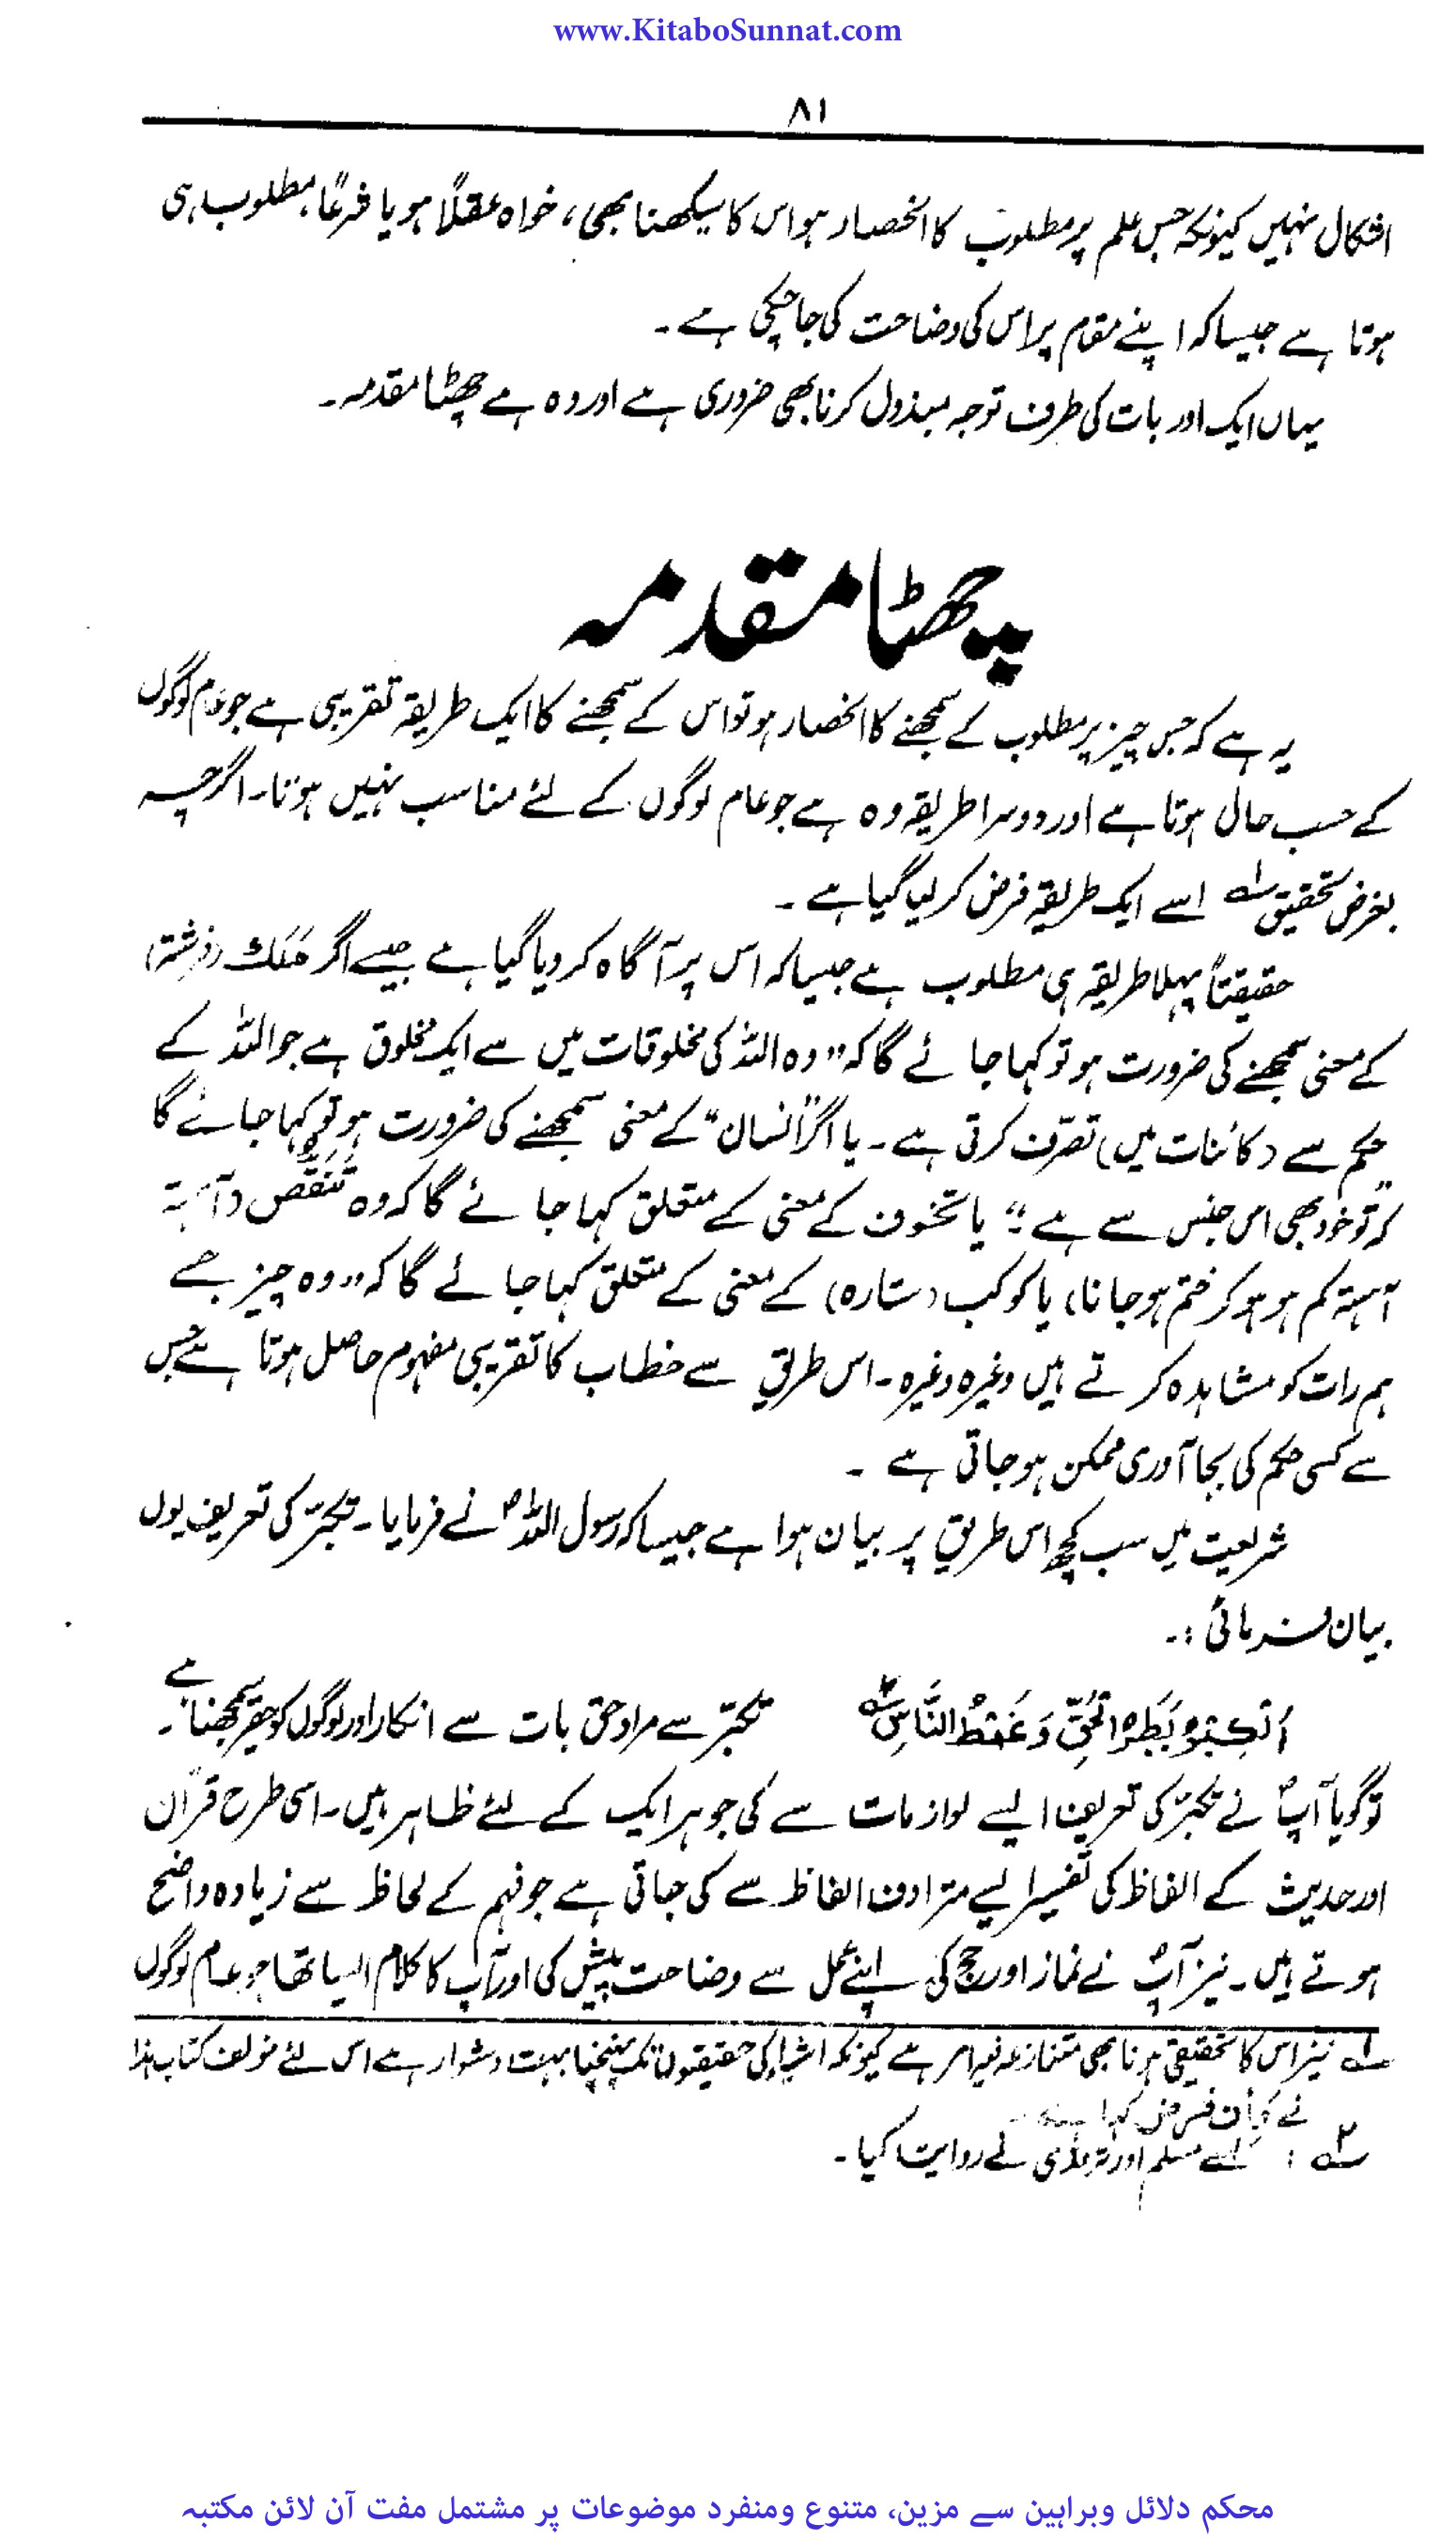 www.KitaboSunnat.com
۸۱
اشکال نہیں کیونکہ جس علم پر مطلوب کا انحصار ہو اس کا سیکھنا بھی، خواہ عقلاً ہو یا شرعاً، مطلوب ہی
ہوتا ہے جیسا کہ اپنے مقام پر اس کی وضاحت کی جا چکی ہے۔
یہاں ایک اور بات کی طرف توجہ مبذول کرنا بھی ضروری ہے اور وہ ہے چھٹا مقدمہ۔
چھٹا مقدمہ
یہ ہے کہ جس چیز پر مطلوب کے سمجھنے کا انحصار ہو تو اس کے سمجھنے کا ایک طریقہ تقریبی ہے جو عام لوگوں
کے حسب حال ہوتا ہے اور دوسرا طریقہ وہ ہے جو عام لوگوں کے لئے مناسب نہیں ہوتا۔ اگرچہ
بغرض تحقیق لہ اسے ایک طریقہ فرض کر لیا گیا ہے۔
حقیقتاً پہلا طریقہ ہی مطلوب ہے جیسا کہ اس پر آگاہ کر دیا گیا ہے جیسے اگر مَلَک (فرشتہ)
کے معنی سمجھنے کی ضرورت ہو تو کہا جائے گا کہ ”وہ اللہ کی مخلوقات میں سے ایک مخلوق ہے جو اللہ کے
حکم سے (کائنات میں) تصرّف کرتی ہے۔ یا اگر ”انسان“ کے معنی سمجھنے کی ضرورت ہو تو کہا جائے گا
کہ تو خود بھی اس جنس سے ہے“ یا تخوف کے معنی کے متعلق کہا جائے گا کہ وہ تَنَقُّص (آہستہ
آہستہ کم ہو ہو کر ختم ہو جانا) یا کوکب (ستارہ) کے معنی کے متعلق کہا جائے گا کہ ”وہ چیز جسے
ہم رات کو مشاہدہ کرتے ہیں وغیرہ وغیرہ۔ اس طریق سے خطاب کا تقریبی مفہوم حاصل ہوتا ہے جس
سے کسی حکم کی بجا آوری ممکن ہو جاتی ہے۔
شریعت میں سب کچھ اس طریق پر بیان ہوا ہے جیسا کہ رسول اللہ ؐ نے فرمایا۔ تکبّر کی تعریف یوں
بیان فرمائی :۔
اَلْکِبْرُ بَطَرُ الْحَقِّ وَغَمْطُ النَّاسِ ۲ہ تکبّر سے مراد حق بات سے انکار اور لوگوں کو حقیر سمجھنا ہے۔
تو گویا آپؐ نے تکبّر کی تعریف ایسے لوازمات سے کی جو ہر ایک کے لئے ظاہر ہیں۔ اسی طرح قرآن
اور حدیث کے الفاظ کی تفسیر ایسے مترادف الفاظ سے کی جاتی ہے جو فہم کے لحاظ سے زیادہ واضح
ہوتے ہیں۔ نیز آپؐ نے نماز اور حج کی اپنے عمل سے وضاحت پیش کی اور آپؐ کا کلام ایسا تھا جو عام لوگوں
۱ہ نیز اس کا تحقیقی ہونا بھی متنازعہ فیہ امر ہے کیونکہ اشیاء کی حقیقتوں تک پہنچنا بہت دشوار ہے اس لئے مولف کتاب ہذا
نے فرض کہا ہے۔
۲ہ : اسے مسلم اور ترمذی نے روایت کیا۔
محکم دلائل وبراہین سے مزین، متنوع ومنفرد موضوعات پر مشتمل مفت آن لائن مکتبہ